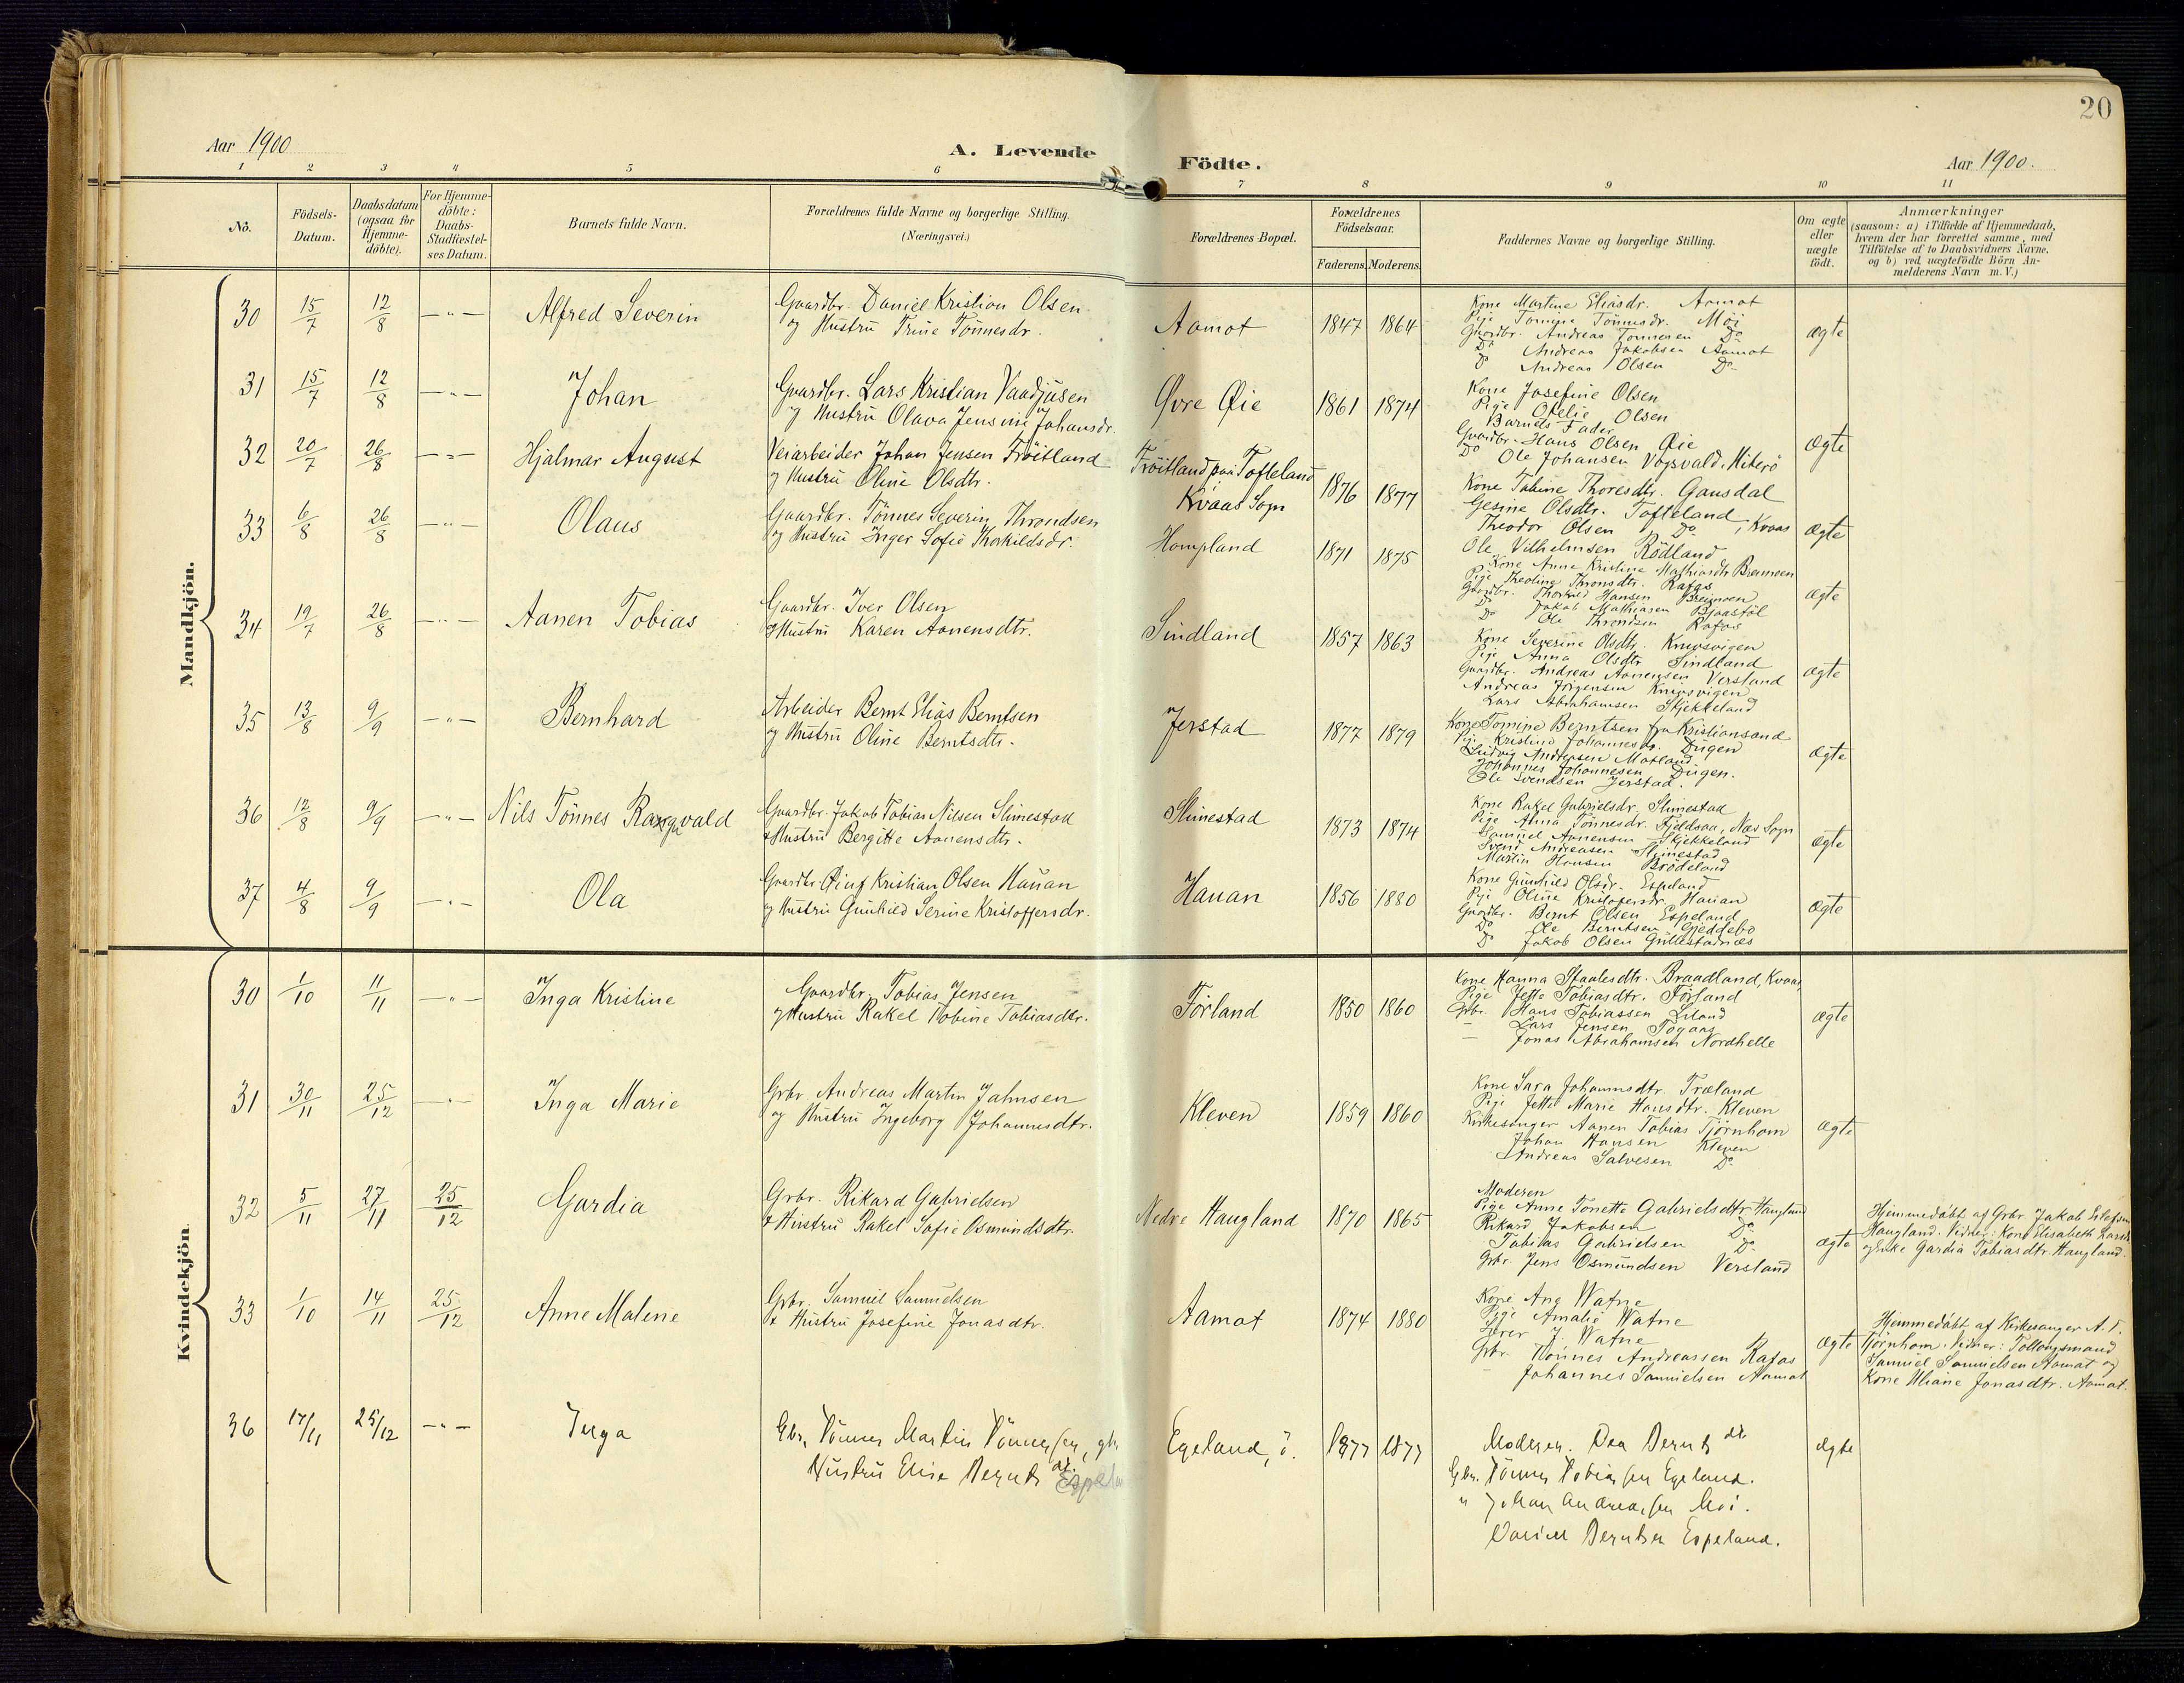 20
Aar 1900
A. Levende
Födte.
Aar 1900.
1 2 3 4 5 6 7 8 9 10 11
No.
Födsels-
Datum.
Daabsdatum
(ogsaa for
Hjemme-
döbte).
For Hjemme-
döbte:
Daabs-
Stadfæstel-
ses Datum.
Barnets fulde Navn.
Forældrenes fulde Navne og borgerlige Stilling.
(Næringsvei.)
Forældrenes Bopæl.
Forældrenes
Födselsaar.
Faderens. Moderens.
Faddernes Navne og borgerlige Stilling.
Om ægte
eller
uægte
födt.
Anmærkninger
(saasom: a) i Tilfælde af Hjemmedaab,
hvem der har forrettet samme, med
Tilföielse af to Daabsvidners Navne.
og b) ved uægtefödte Börn An-
melderens Navn m. V.)
Mandkjön.
30 15/7 12/8 —"— Alfred Severin
Gaardbr. Daniel Kristian Olsen
og Hustru Trine Tönnesdr.
Aamot 1847 1864
Kone Martine Eliasdr. Aamot
Pige Tomine Tönnesdr. Möi
Gaardbr. Andreas Tönnesen Do
Do Andreas Jakobsen Aamot
Do Andreas Olsen Do
ægte
31 15/7 12/8 —"— Johan
Gaardbr. Lars Kristian Vaadjusen
og Hustru Olava Jensine Johansdr.
Øvre Øie 1861 1874
Kone Josefine Olsen
Pige Otelie Olsen
Barnets Fader
Gaardbr. Hans Olsen Øie
Do Ole Johansen Vogsvald, Hiterö
ægte
32 20/7 26/8 —"— Hjalmar August
Veiarbeider Johan Jensen Fröitland
og Hustru Oline Olsdtr.
Fröitland paa Tofteland
Kvaas Sogn
1876 1877
Kone Tabine Thoresdtr. Gausdal
Gesine Olsdtr. Tofteland
Theodor Olsen Do, Kvaas
Ole Vilhelmsen Rödland
ægte
33 6/8 26/8 —"— Olaus
Gaardbr. Tönnes Severin Throndsen
og Hustru Inger Sofie Thorkildsdr.
Hompland 1871 1875
Kone Anne Kristine Mathiasdtr. Breimoen
Pige Theoline Thronsdtr. Rafos
Gaardbr. Thorkild Hansen Breimoen
Do Jakob Mathiasen Bjaastöl
Do Ole Throndsen Rafos
ægte
34 19/7 26/8 —"— Aanen Tobias
Gaardbr. Iver Olsen
og Hustru Karen Aanensdtr.
Sindland 1857 1863
Kone Severine Olsdtr. Knivsvigen
Pige Anna Olsdtr. Sindland
Gaardbr. Andreas Aanensen Versland
Andreas Jörgensen Knivsvigen
Lars Abrahamsen Skjekkeland
ægte
35 13/8 9/9 —"— Bernhard
Arbeider Bernt Elias Berntsen
og Hustru Oline Berntsdtr.
Jerstad 1877 1879
Kone Tomine Berntsen fra Kristiansand
Pige Kristine Johannesdr. Dugen
Ludvig Andersen Matland
Johannes Johannesen Dugen.
Ole Svendsen Jerstad.
ægte
36 12/8 9/9 —"— Nils Tönnes Ragnvald
Gaardbr. Jakob Tobias Nilsen Slimestad
og Hustru Bergitte Aanensdtr.
Slimestad 1873 1874
Kone Rakel Gabrielsdr. Slimestad
Pige Anna Tönnesdr. Fjeldsaa, Næs Sogn
Samuel Aanensen Skjekkeland
Svend Andreasen Slimestad
Martin Hansen Brödeland
ægte
37 4/8 9/9 —"— Ola
Gaardbr. Öiuf Kristian Olsen Hauan
og Hustru Gunhild Serine Kristoffersdr.
Hauan 1856 1880
Kone Gunhild Olsdr. Espeland
Pige Oline Kristofersdr. Hauan
Gaardbr. Bernt Olsen Espeland
Do Ole Berntsen Gjeddebo
Do Jakob Olsen Gullestadnæs
ægte
Kvindekjön.
30 1/10 11/11 —"— Inga Kristine
Gaardbr. Tobias Jensen
og Hustru Rakel Tobine Tobiasdtr.
Förland 1850 1860
Kone Hanna Staalesdtr. Braadland, Kvaas,
Pige Jette Tobiasdtr. Förland
Grbr. Hans Tobiassen Liland
— Lars Jensen
— Jonas Abrahamsen Nordhelle
ægte
31 30/11 25/12 —"— Inga Marie
Grbr Andreas Martin Jahnsen
og Hustru Ingeborg Johannesdtr.
Kleven 1859 1860
Kone Sara Johannsdtr. Træland
Pige Jette Marie Hansdtr. Kleven
Kirkesanger Aanen Tobias Tjörnhom
Johan Hansen Kleven
Andreas Salvesen Do
ægte
32 5/11 27/11 25/12 Gardia
Grbr. Rikard Gabrielsen
& Hustru Rakel Sofie Osmundsdtr.
Nedre Haugland 1870 1865
Moderen
Pige Anne Tonette Gabrielsdtr. Haugland
Rikard Jakobsen Do
Tobias Gabrielsen Do
Grbr. Jens Osmundsen Versland
ægte
Hjemmedöbt af Grbr Jakob
Haugland. Vidner: Kone Elisabeth Larsdr.
og Enke Gardia Tobiasdtr. Haugland.
33 1/10 14/11 25/12 Anne Malene
Grbr. Samuel Samuelsen
& Hustru Josefine Jonasdtr.
Aamot 1874 1880
Kone Ang Watne
Pige Amalie Watne
Lærer J. Watne
Grbr. Tönnes Andreassen Rafos
— Johannes Samuelsen Aamot
ægte
Hjemmedöbt af Kirkesanger A. T.
Tjörnhom. Vidner: Föllougsmand
Samuel Samuelsen Aamot og
Kone Uliane Jonasdtr. Aamot.
36 17/11 25/12 —"— Inga
Gbr. Tönnes Martin Tönnessen, gbr.
Hustru Elise Bernts dt. Espeland
Egeland, ö. 1877 1877
Moderen. Dea Bernts dt.
Gbr. Tönnes Tobiassen Egeland.
" Johan Andreassen Moi.
Daniel Berntsen Espeland.
ægte